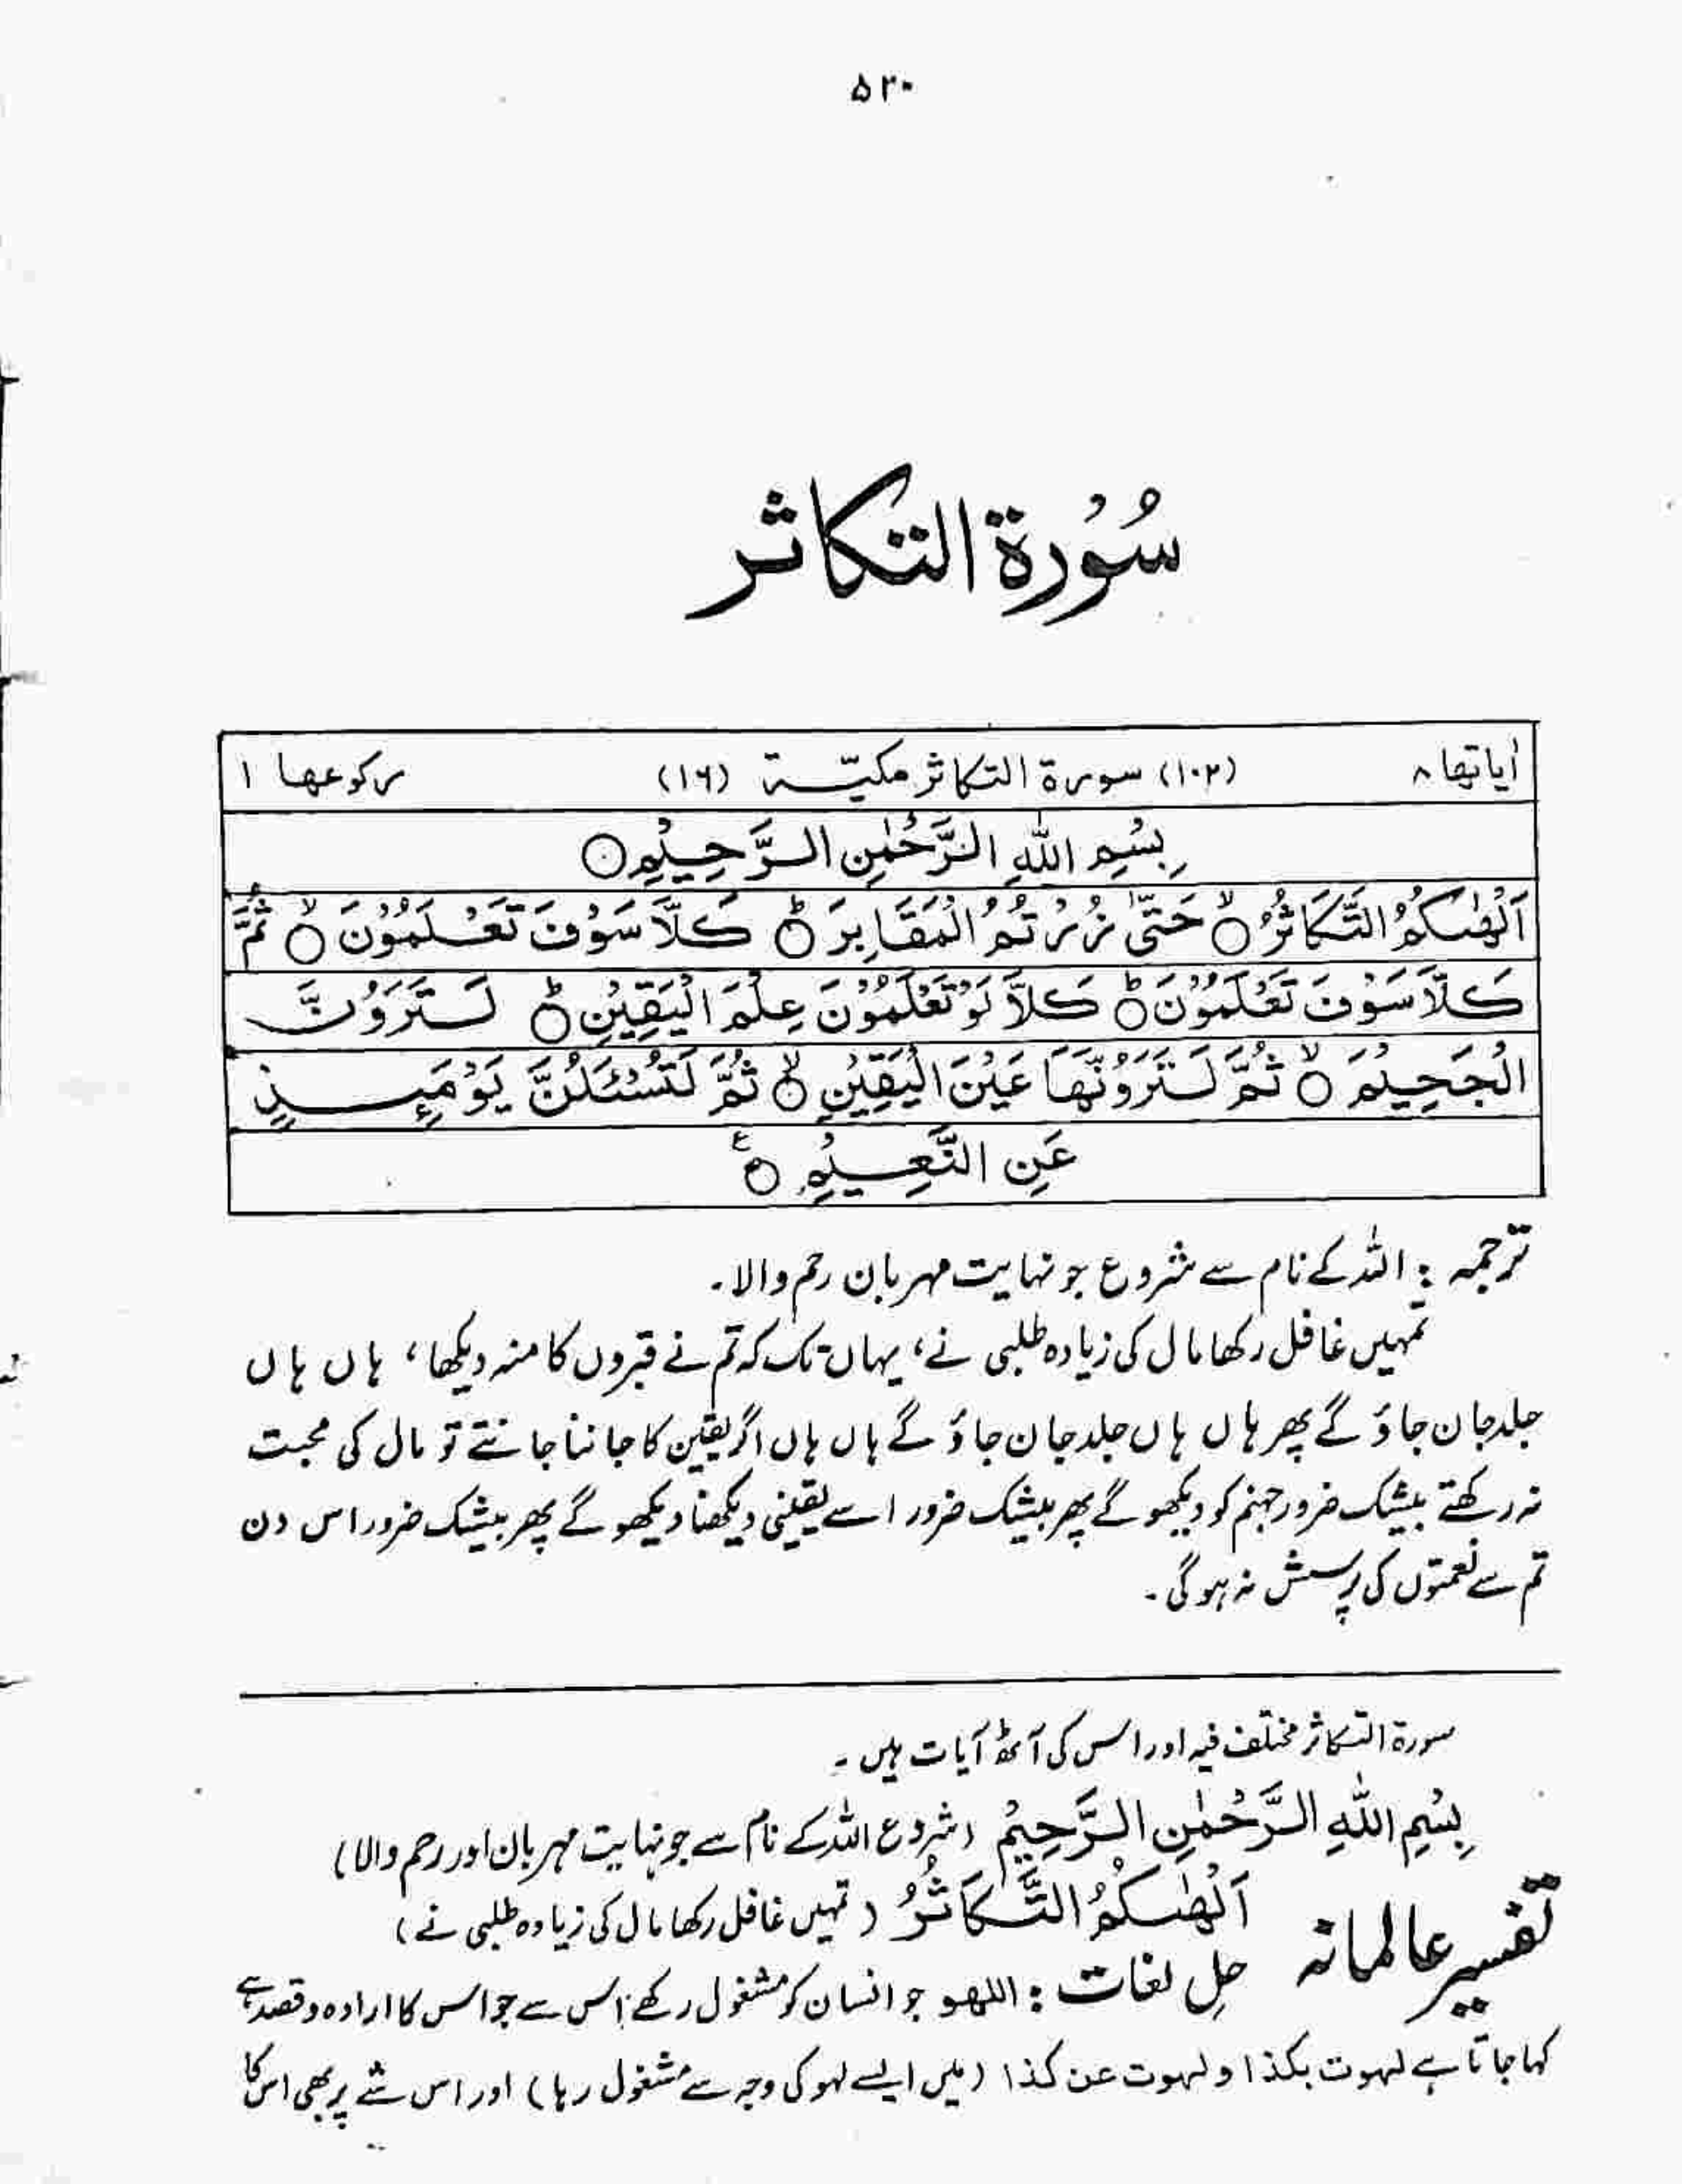 ۵۲۰
سُوْرۃ التکاثر
اٰیاتها ۸ (۱۰۲) سورۃ التکاثر مکیّۃ (۱۶) رکوعها ۱
بِسْمِ اللّٰهِ الرَّحْمٰنِ الرَّحِیْمِ○
اَلْهٰىكُمُ التَّكَاثُرُ ○ۙ حَتّٰى زُرْتُمُ الْمَقَابِرَ ○ؕ كَلَّا سَوْفَ تَعْلَمُوْنَ ○ۙ ثُمَّ
كَلَّا سَوْفَ تَعْلَمُوْنَ ○ؕ كَلَّا لَوْ تَعْلَمُوْنَ عِلْمَ الْیَقِیْنِ ○ؕ لَتَرَوُنَّ
الْجَحِیْمَ ○ۙ ثُمَّ لَتَرَوُنَّهَا عَیْنَ الْیَقِیْنِ ○ۙ ثُمَّ لَتُسْئَلُنَّ یَوْمَىِٕذٍ
عَنِ النَّعِیْمِ ○ۧ
ترجمہ : اللہ کے نام سے شروع جو نہایت مہربان رحم والا۔
تمہیں غافل رکھا مال کی زیادہ طلبی نے، یہاں تک کہ تم نے قبروں کا منہ دیکھا، ہاں ہاں
جلد جان جاؤ گے پھر ہاں ہاں جلد جان جاؤ گے ہاں ہاں اگر یقین کا جاننا جانتے تو مال کی محبت
نہ رکھتے بیشک ضرور جہنم کو دیکھو گے پھر بیشک ضرور اسے یقینی دیکھنا دیکھو گے پھر بیشک ضرور اس دن
تم سے نعمتوں کی پرسش نہ ہوگی۔
سورۃ التکاثر مختلف فیہ اور اس کی آٹھ آیات ہیں۔
بِسْمِ اللّٰهِ الرَّحْمٰنِ الرَّحِیْمِ (شروع اللہ کے نام سے جو نہایت مہربان اور رحم والا)
تفسیر عالمانہ اَلْهٰىكُمُ التَّكَاثُرُ (تمہیں غافل رکھا مال کی زیادہ طلبی نے)
حل لغات : اللھو جو انسان کو مشغول رکھے اس سے جو اس کا ارادہ و قصد ہے
کہا جاتا ہے لھوت بکذا و لھوت عن کذا (میں ایسے لہو کی وجہ سے مشغول رہا) اور اس شے پر بھی اس کا